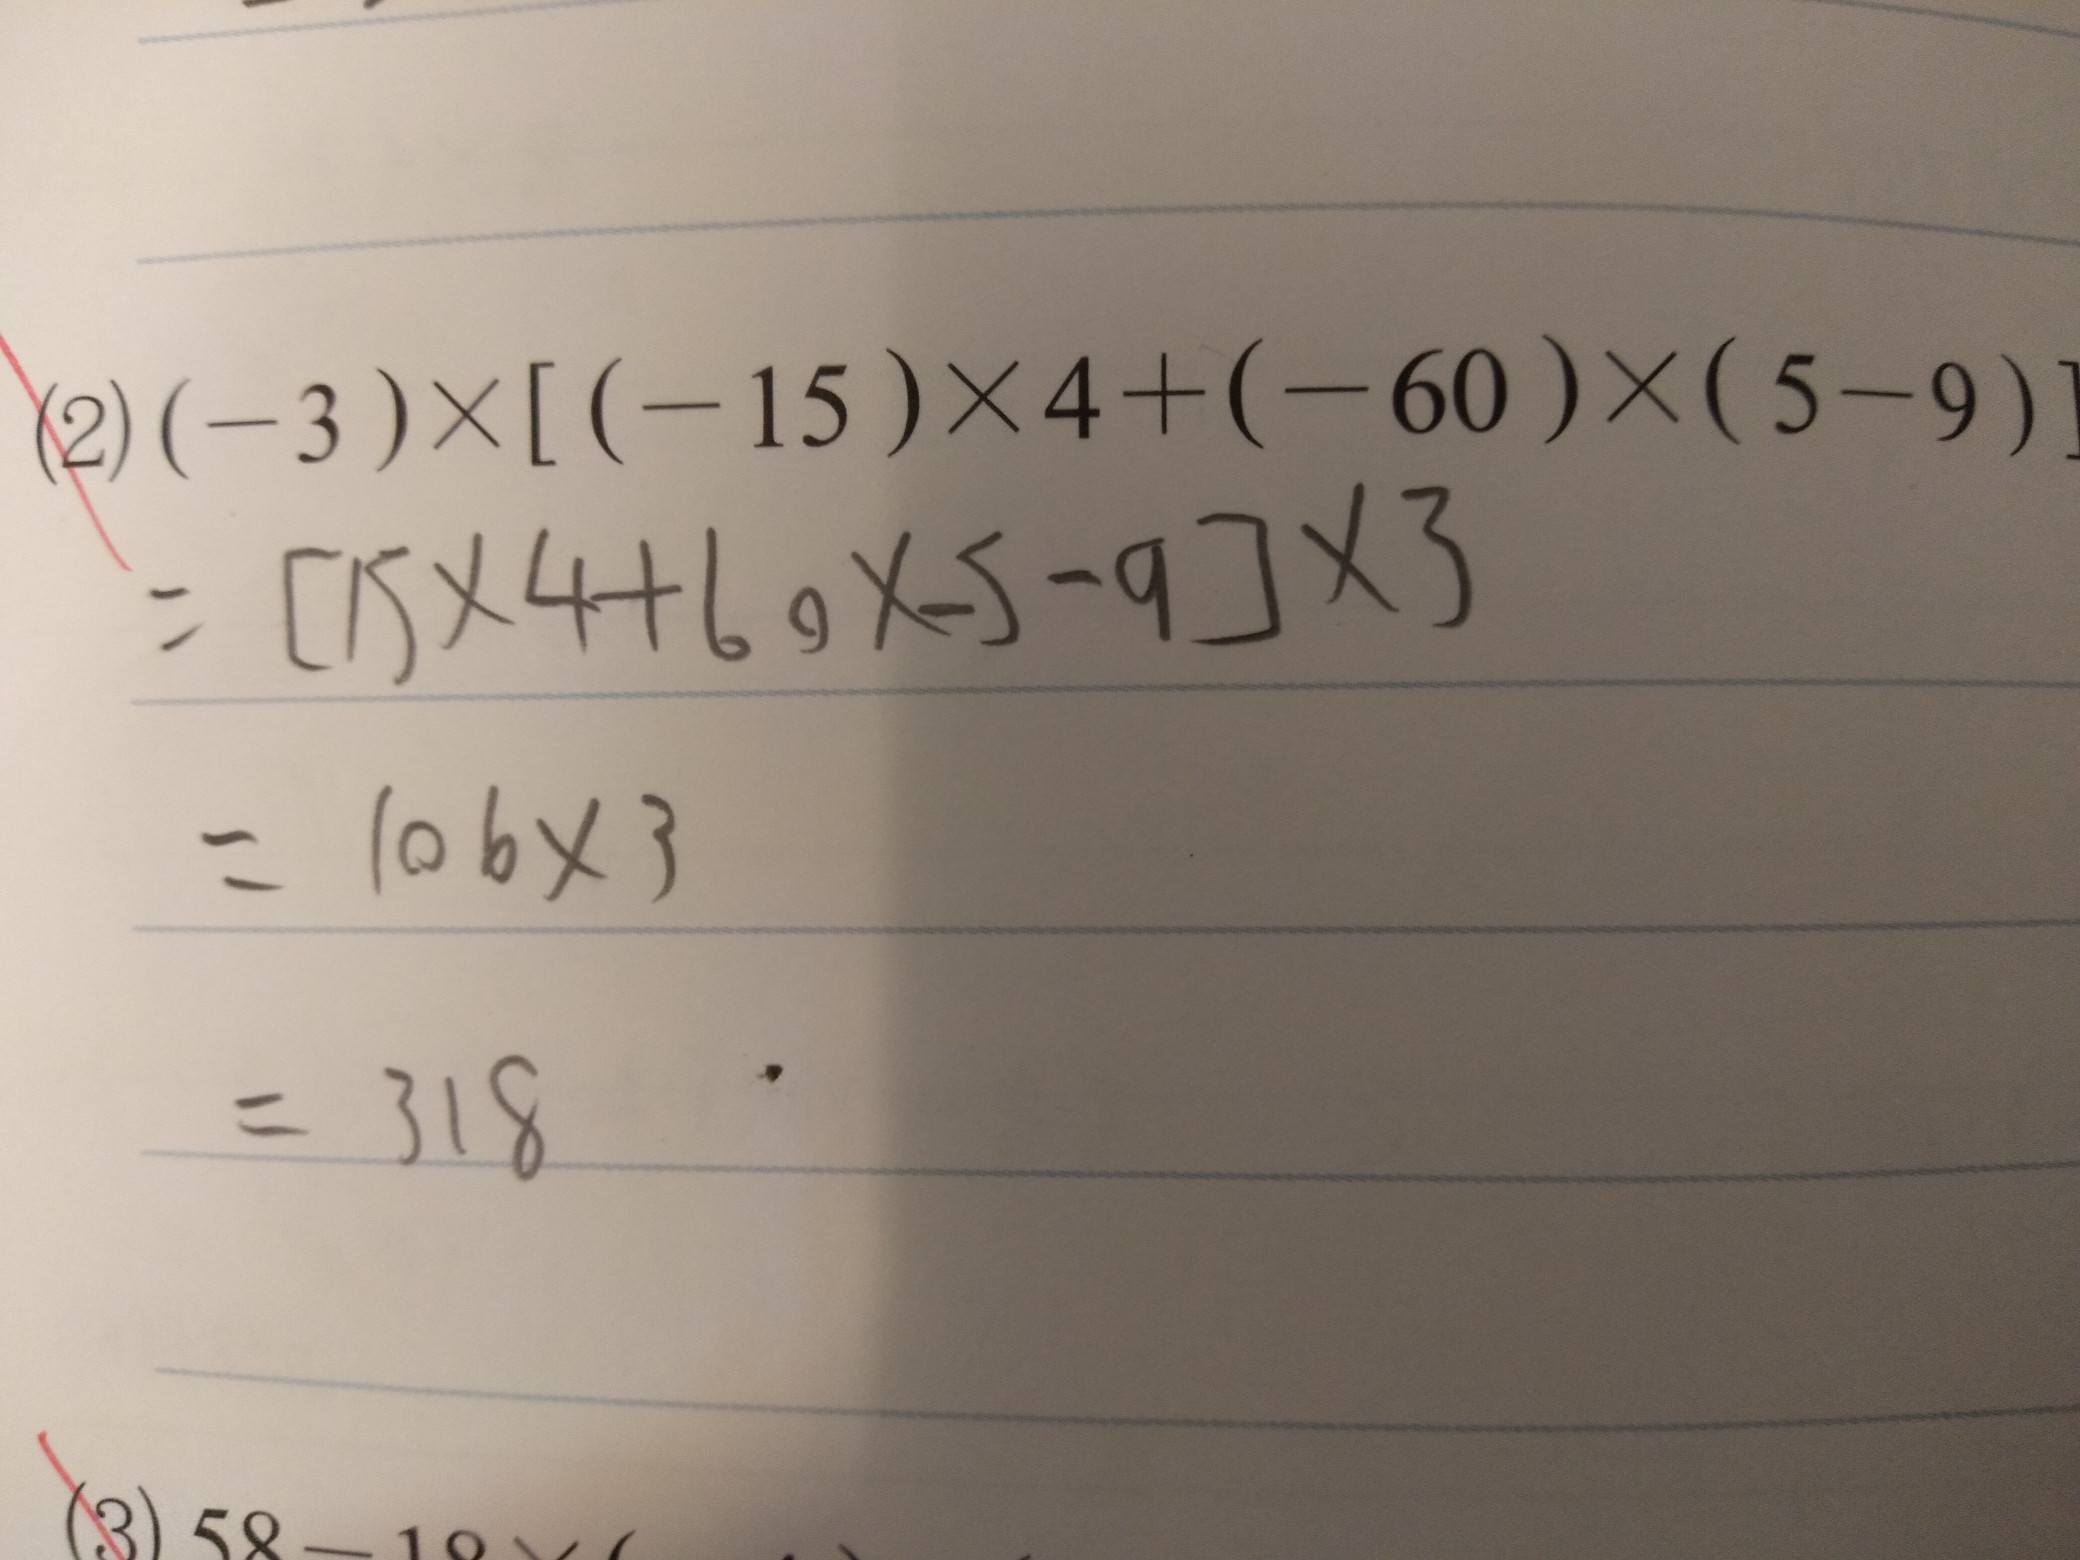 (2) (-3)×[(-15)×4+(-60)×(5-9)]
= [15×4+60×-5-9]×3
= 106×3
= 318
(3) 58-18×(